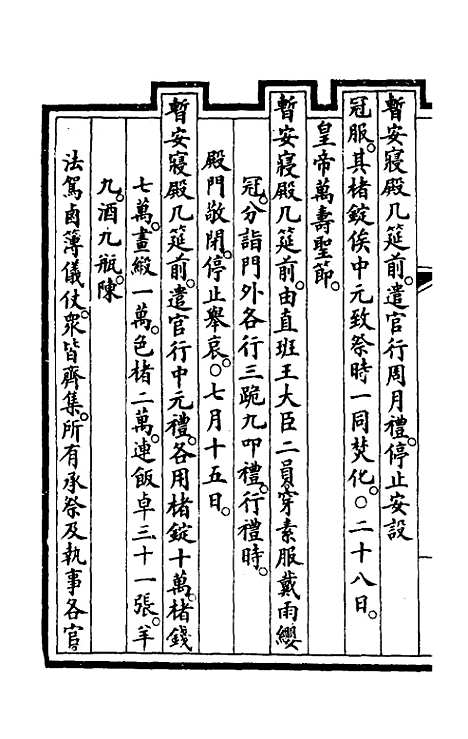 暫安寢殿几筵前。遣官行周月禮。停止安設
冠服。其楮錠俟中元致祭時一同焚化。○二十八日。
皇帝萬壽聖節。
暫安寢殿几筵前。由直班王大臣二員穿素服戴雨纓
冠。分詣門外各行三跪九叩禮。行禮時。
殿門敬閉。停止舉哀。○七月十五日。
暫安寢殿几筵前。遣官行中元禮。各用楮錠十萬。楮錢
七萬。畫緞一萬。色楮二萬。連飯卓三十一張。羊
九。酒九瓶。陳
法駕鹵簿儀仗。眾皆齊集。所有承祭及執事各官。